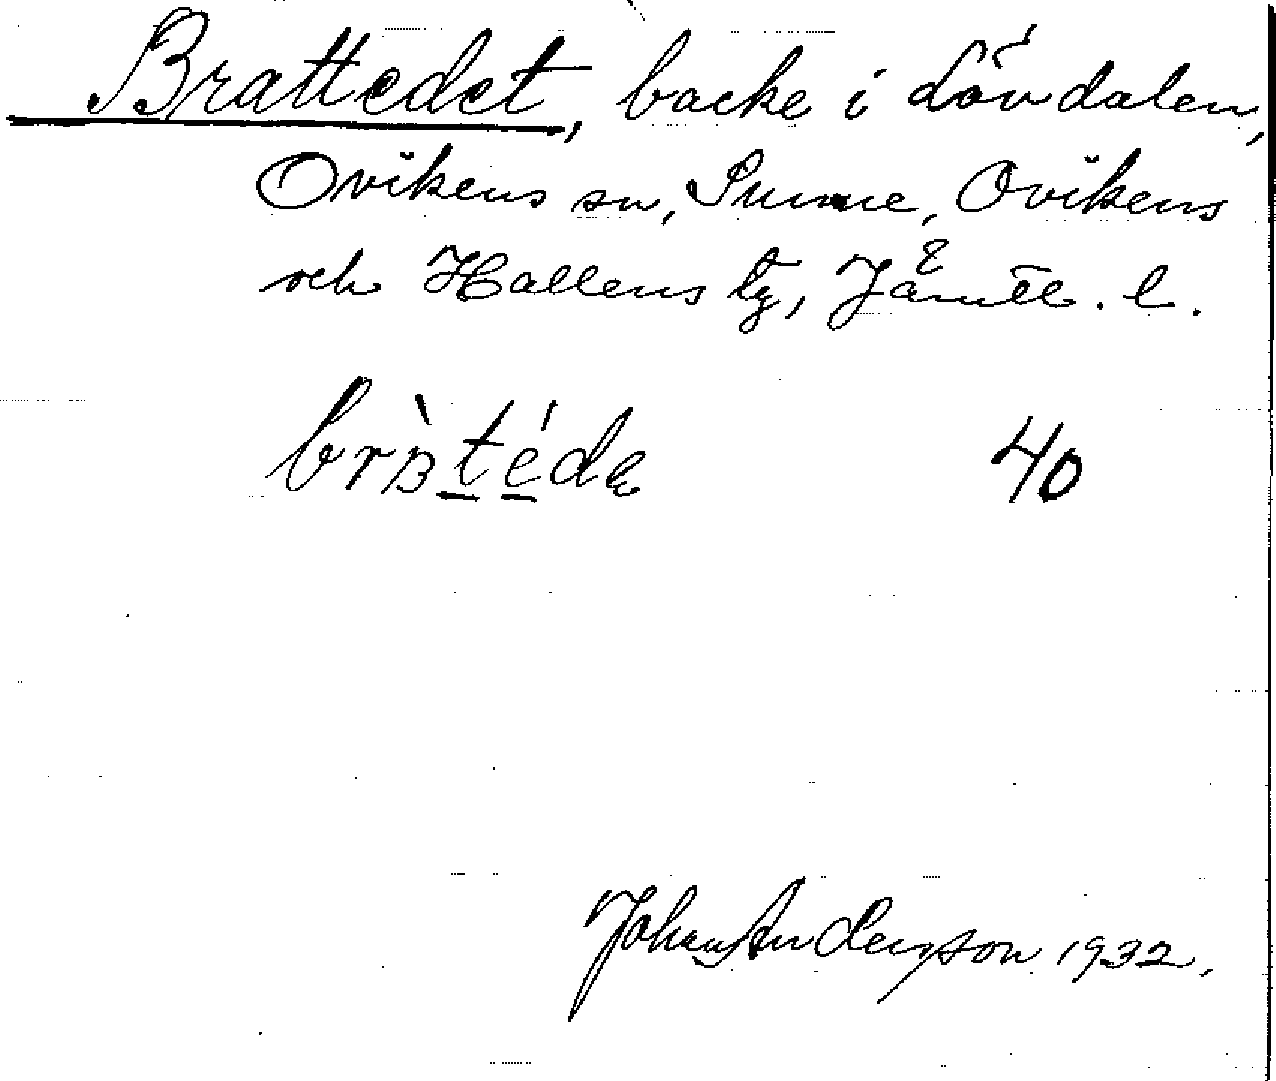 Brattedet, backe i Lövdalen,
Ovikens sn, Sunne, Ovikens
och Hallens tg, Jämtl. l.
40
Johan Anderson 1932.